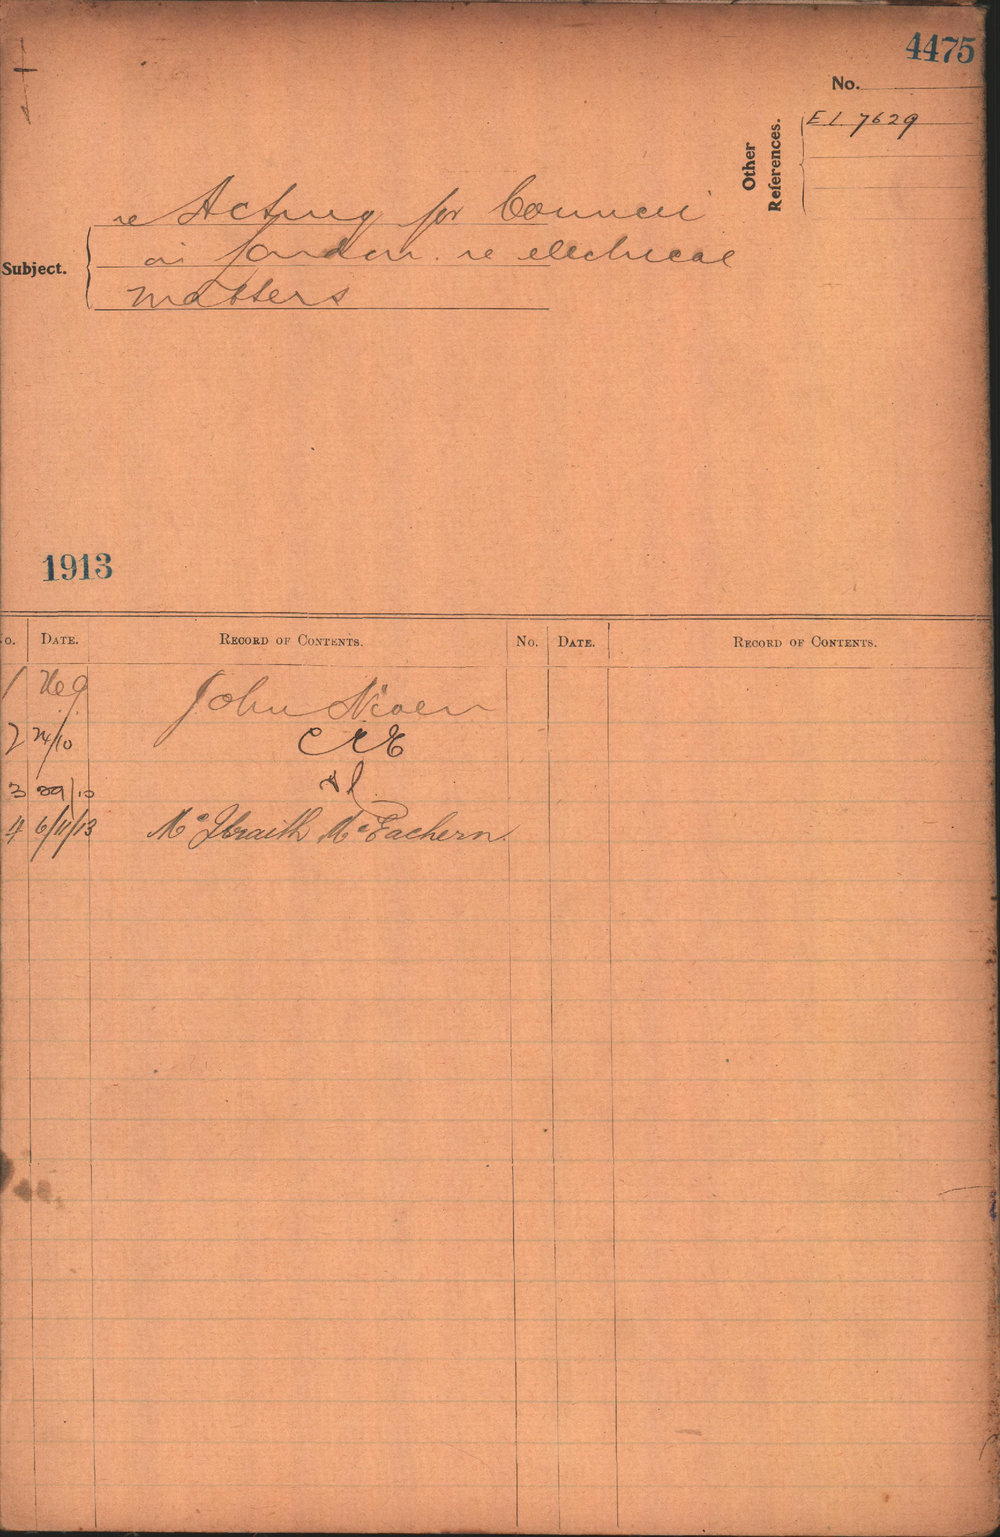 4475
No.
Other References.
E.L. 7629
Subject.
re Acting for Council
in London re electrical
matters
1913
No. DATE. RECORD OF CONTENTS. No. DATE. RECORD OF CONTENTS.
1 John Niven
2 24/10 CEE
3 29/10
4 6/11/13 McIlwraith McEachern